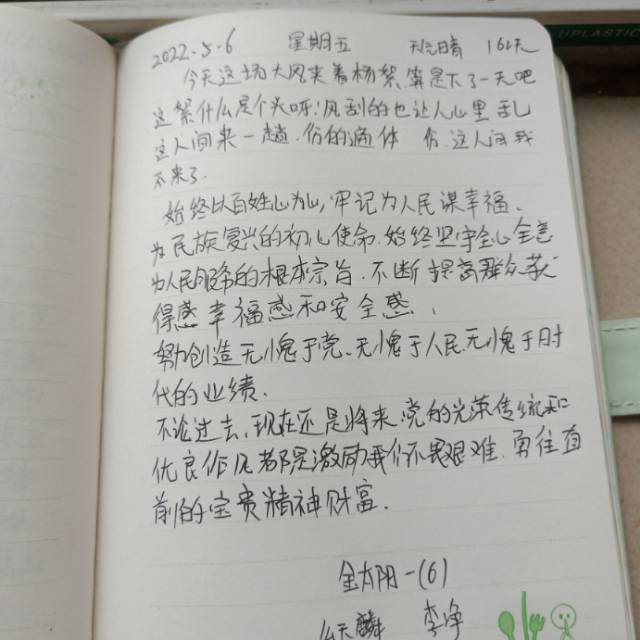 UPLASTIC
2022-5-6 星期五 天气晴 161天
今天这场大风夹着杨絮,算是下了一天吧
这絮什么是个头呀,风刮的也让人心里乱
这人间来一趟.伤的遍体 伤.这人间我
不来了.
始终以百姓心为心,牢记为人民谋幸福、
为民族复兴的初心使命.始终坚守全心全意
为人民服务的根本宗旨.不断提高群众获
得感幸福感和安全感.
努力创造无愧于党、无愧于人民无愧于时
代的业绩.
不论过去、现在还是将来.党的光荣传统和
优良作风都是激励我们不畏艰难、勇往直
前的宝贵精神财富.
金太阳-(6)
天麟 李净